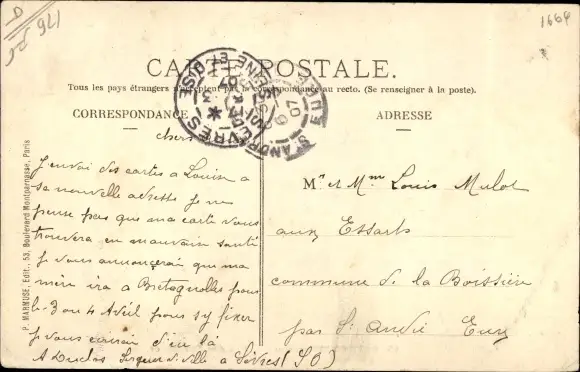 176
1664
CARTE POSTALE.
Tous les pays étrangers n'acceptent pas la correspondance au recto. (Se renseigner à la poste).
CORRESPONDANCE
ADRESSE
SÈVRES
SEINE ET OISE
07
ST ANDRÉ
EURE
07
chers
J'envoi des cartes a Louise a
sa nouvelle adresse je ne
pense pas que ma carte vous
trouvera en mauvais santé
je vous annoncerai que ma
mère ira a Bretagnolles pour
le 3 ou 4 Avril pour s'y fixer
je vous d'ici là
A Duclos Sergent de ville a Sèvres (S O)
Mr et Mme Louis Mulot
aux Essarts
commune de la Boissière
par St André Eure
P. MARMUSE, Edit., 53, Boulevard Montparnasse, Paris